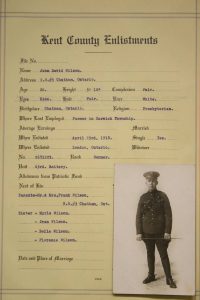 Kent County Enlistments
File No.
Name John David Wilson.
Address R.R.#5 Chatham, Ontario.
Age Height 5' 10½ Complexion Fair.
Eyes Hair Fair. Race White.
Birthplace Chatham, Ontario. Religion Presbyterian.
Where Last Employed Farmer in Harwich Township.
Average Earnings Married
When Enlisted April 23rd, 1918. Single Yes.
Where Enlisted London, Ontario. Widower
No. Rank Gunner.
Unit Battery.
Allowance from Patriotic Fund
Next of Kin
Parents-Mr.& Mrs.Frank Wilson,
R.R.#5 Chatham, Ont.
Sister - Wilson.
- Jean Wilson.
- Wilson.
- Florence Wilson.
Date and Place of Marriage